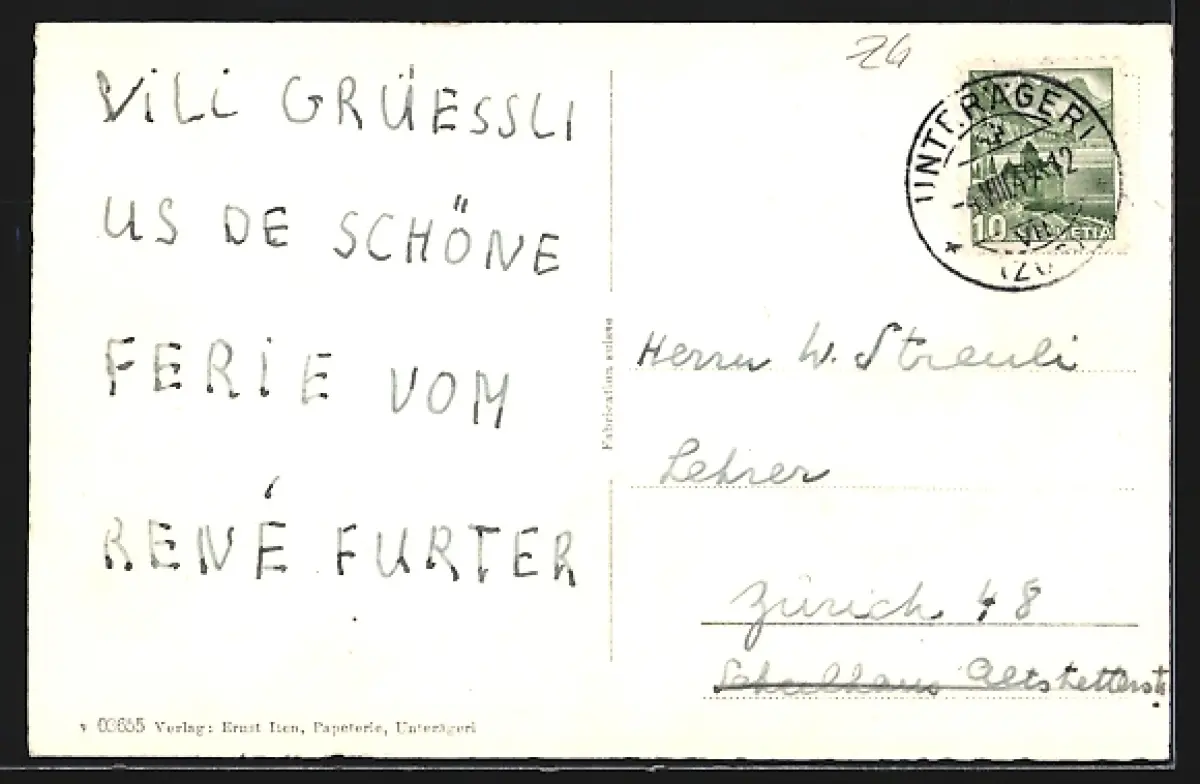 VILI GRÜESSLI
US DE SCHÖNE
FERIE VOM
RENÉ FURTER
v 00655 Verlag: Ernst Iten, Papeterie, Unterägeri
Fabrication suisse
UNTERÄGERI
VIII 49-12
(ZUG)
10 HELVETIA
Herrn W. Streuli
Lehrer
Zürich 48
Schulhaus Altstetterstr